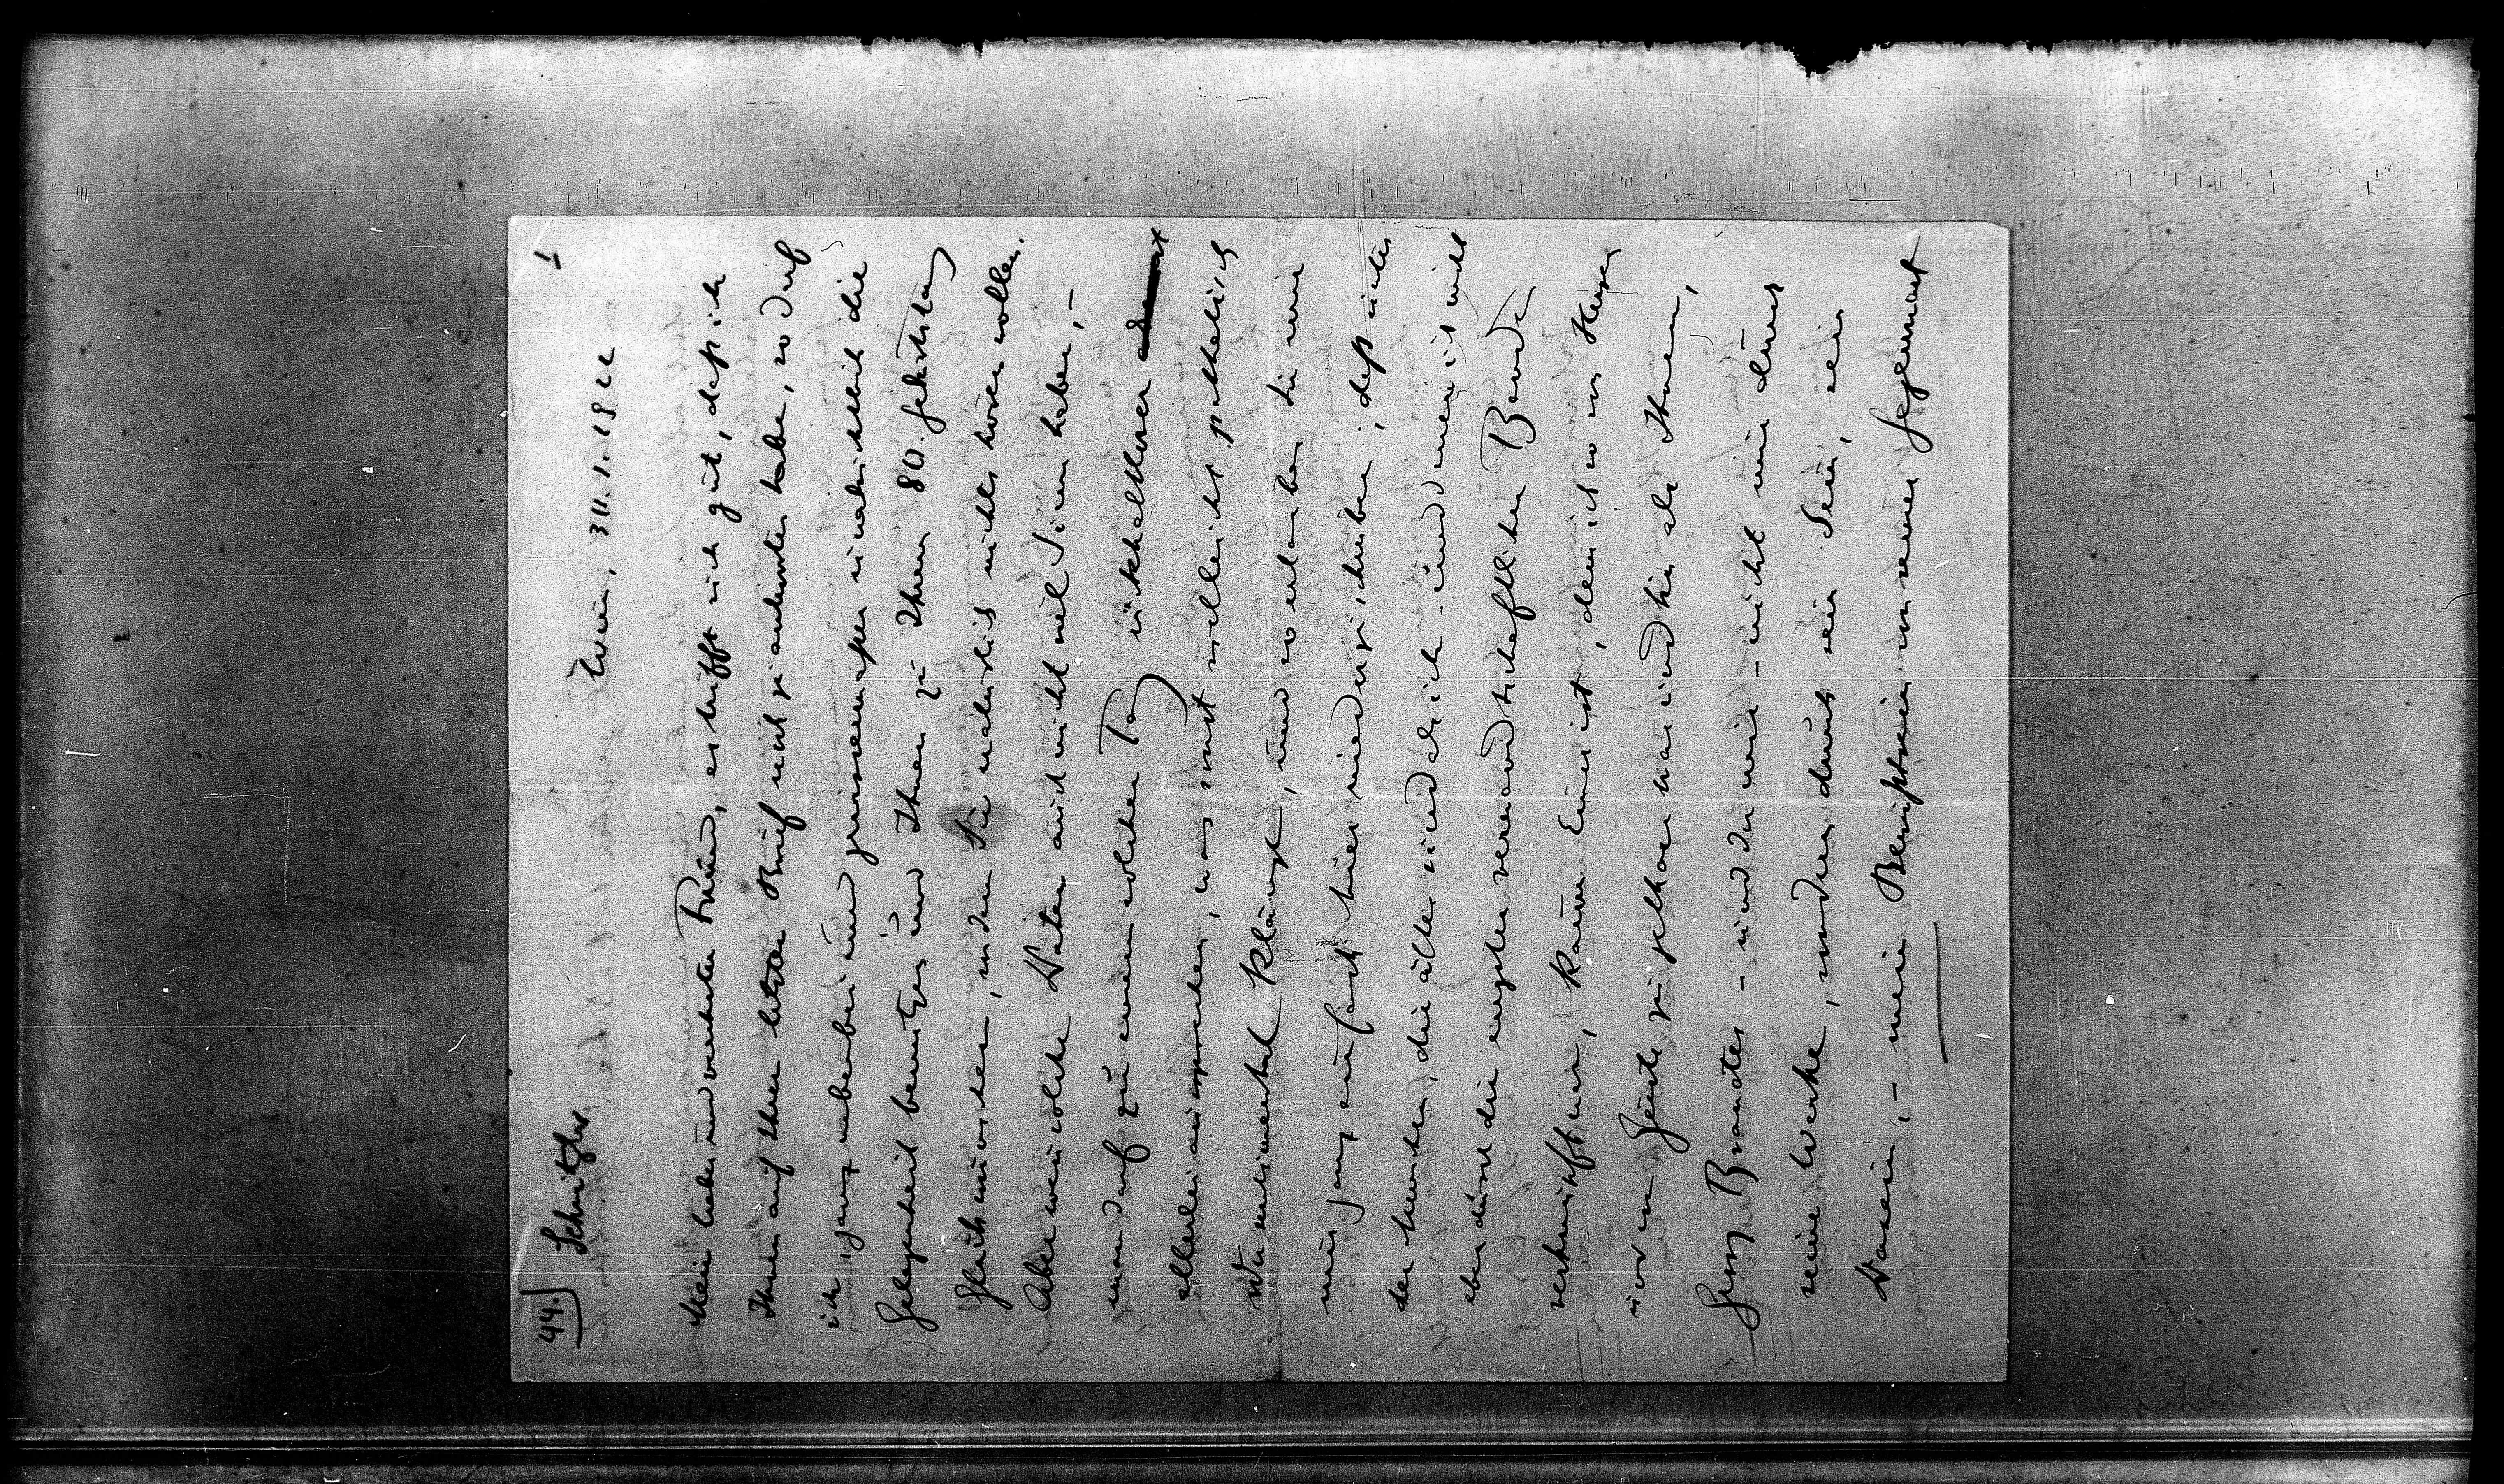 44.) Schnitzler
1
Wien, 30.1.1922
Mein lieber und verehrter Freund, es trifft sich gut, dass ich
Ihnen auf Ihren letzten Brief nicht geantwortet habe, so darf
ich ganz nebenbei und gewissermaßen unabsichtlich die
Gelegenheit benutzen und Ihnen zu Ihrem 80. Geburtstag
Glückwünschen, von dem Sie natürlich nichts hören wollen.
Aber wenn solche Daten auch nicht viel Sinn haben, –
man darf zu einem solchen Tag rückhaltloser
allerlei aussprechen, was sonst vielleicht pathetisch
oder sentimental klänge, und so erlauben Sie mir
nur ganz einfach hier niederzuschreiben, dass unter
den Menschen, die älter sind als ich – und mein ist nicht
eben durch die engsten verwandtschaftlichen Bande
verknüpft bin, kaum Einer ist, dem ich so von Herzen
und im Geiste zugethan war und bin als Ihnen,
Georg Brandes – und der mir – nicht nur durch
seine Werke, sondern durch sein Sein, sein
Dasein, – mein Bewusstsein von seiner Gegenwart